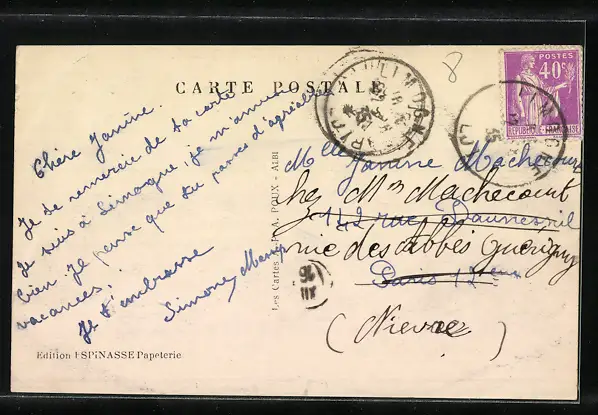 CARTE POSTALE
8
POSTES
40c
REPUBLIQUE FRANÇAISE
Chère Janine.
Je te remercie de ta carte
Je suis à Limoges, je m'amuse
bien je pense que tu passes d'agréables
vacances.
Je t'embrasse
Simone
Mlle Janine Machecourt
chez Mr Machecourt
142 rue Daumesnil
rue des abbés Guérigny
Paris 12eme
(Nievre)
Les Cartes A.P.A. POUX - ALBI
Edition ESPINASSE Papeterie